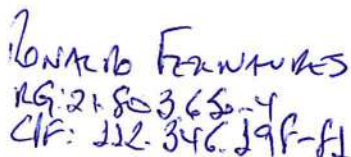 RONALDO FERNANDES
RG: 21.803650-4
CIF: 112.346.198-81